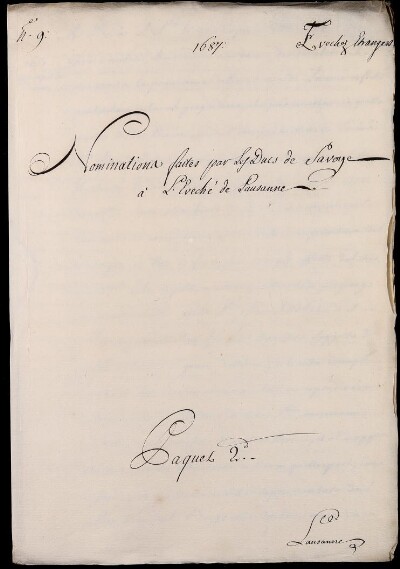 N.º 9.
1687.
Evechez Etrangers
Nominations faites par les Ducs de Savoye
à L'Eveché de Lausanne
Paquet 2.d
Lausanne